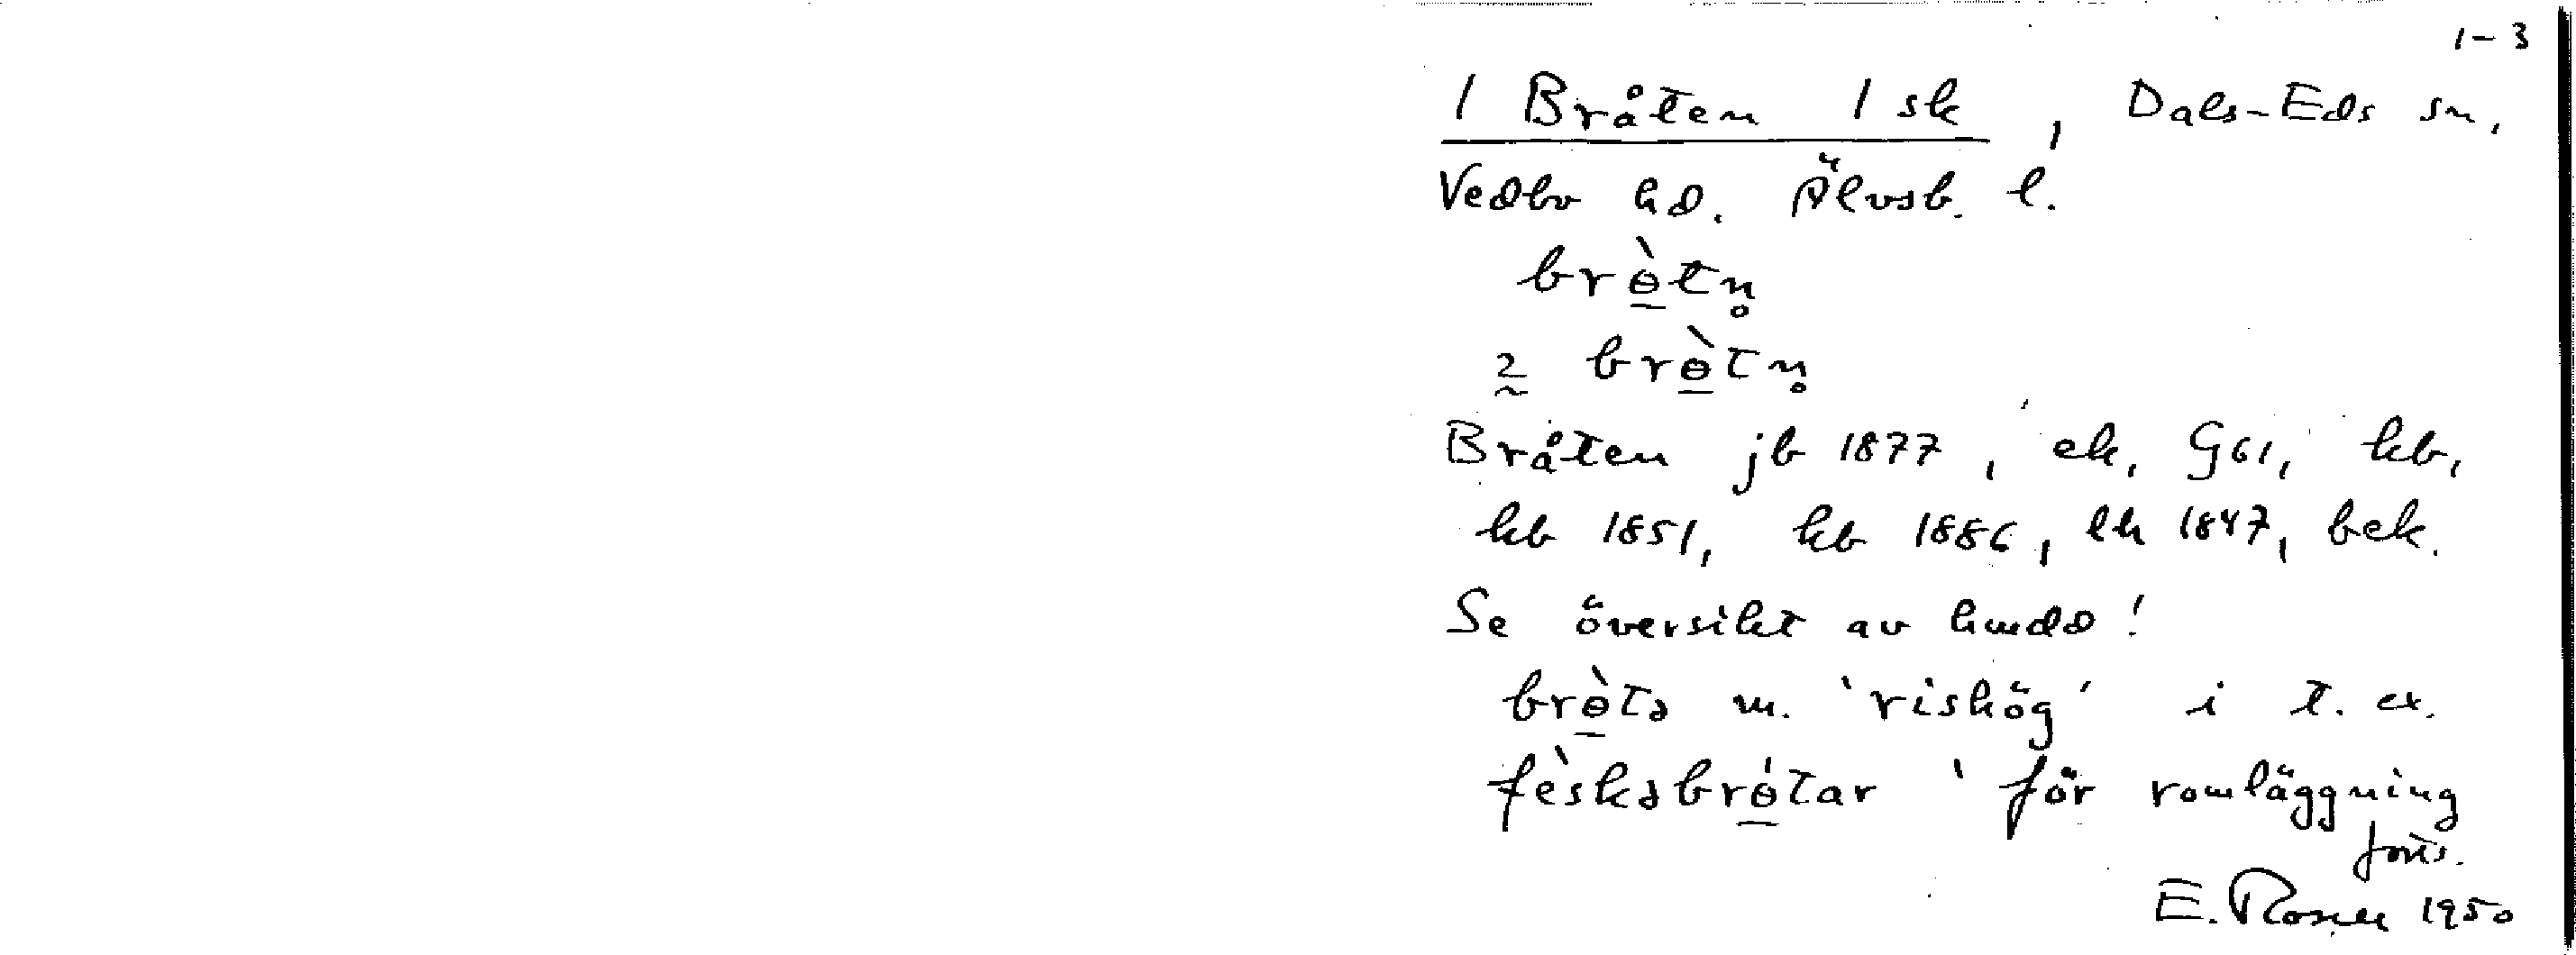 1-3
1 Bråten 1 sk, Dals-Eds sn,
Vedbo hd. Älvsb. l.
brɵ̀tn̥
2 brɵ̀tn̥
Bråten jb 1877, ek, G61, kb,
hb 1851, kb 1886, lh 1847, bek.
Se översikt av hmdd!
brɵ̀tə m. 'rishög' i t. ex.
fèskəbrɵ́tar ' för romläggning
E. Rosell 1950